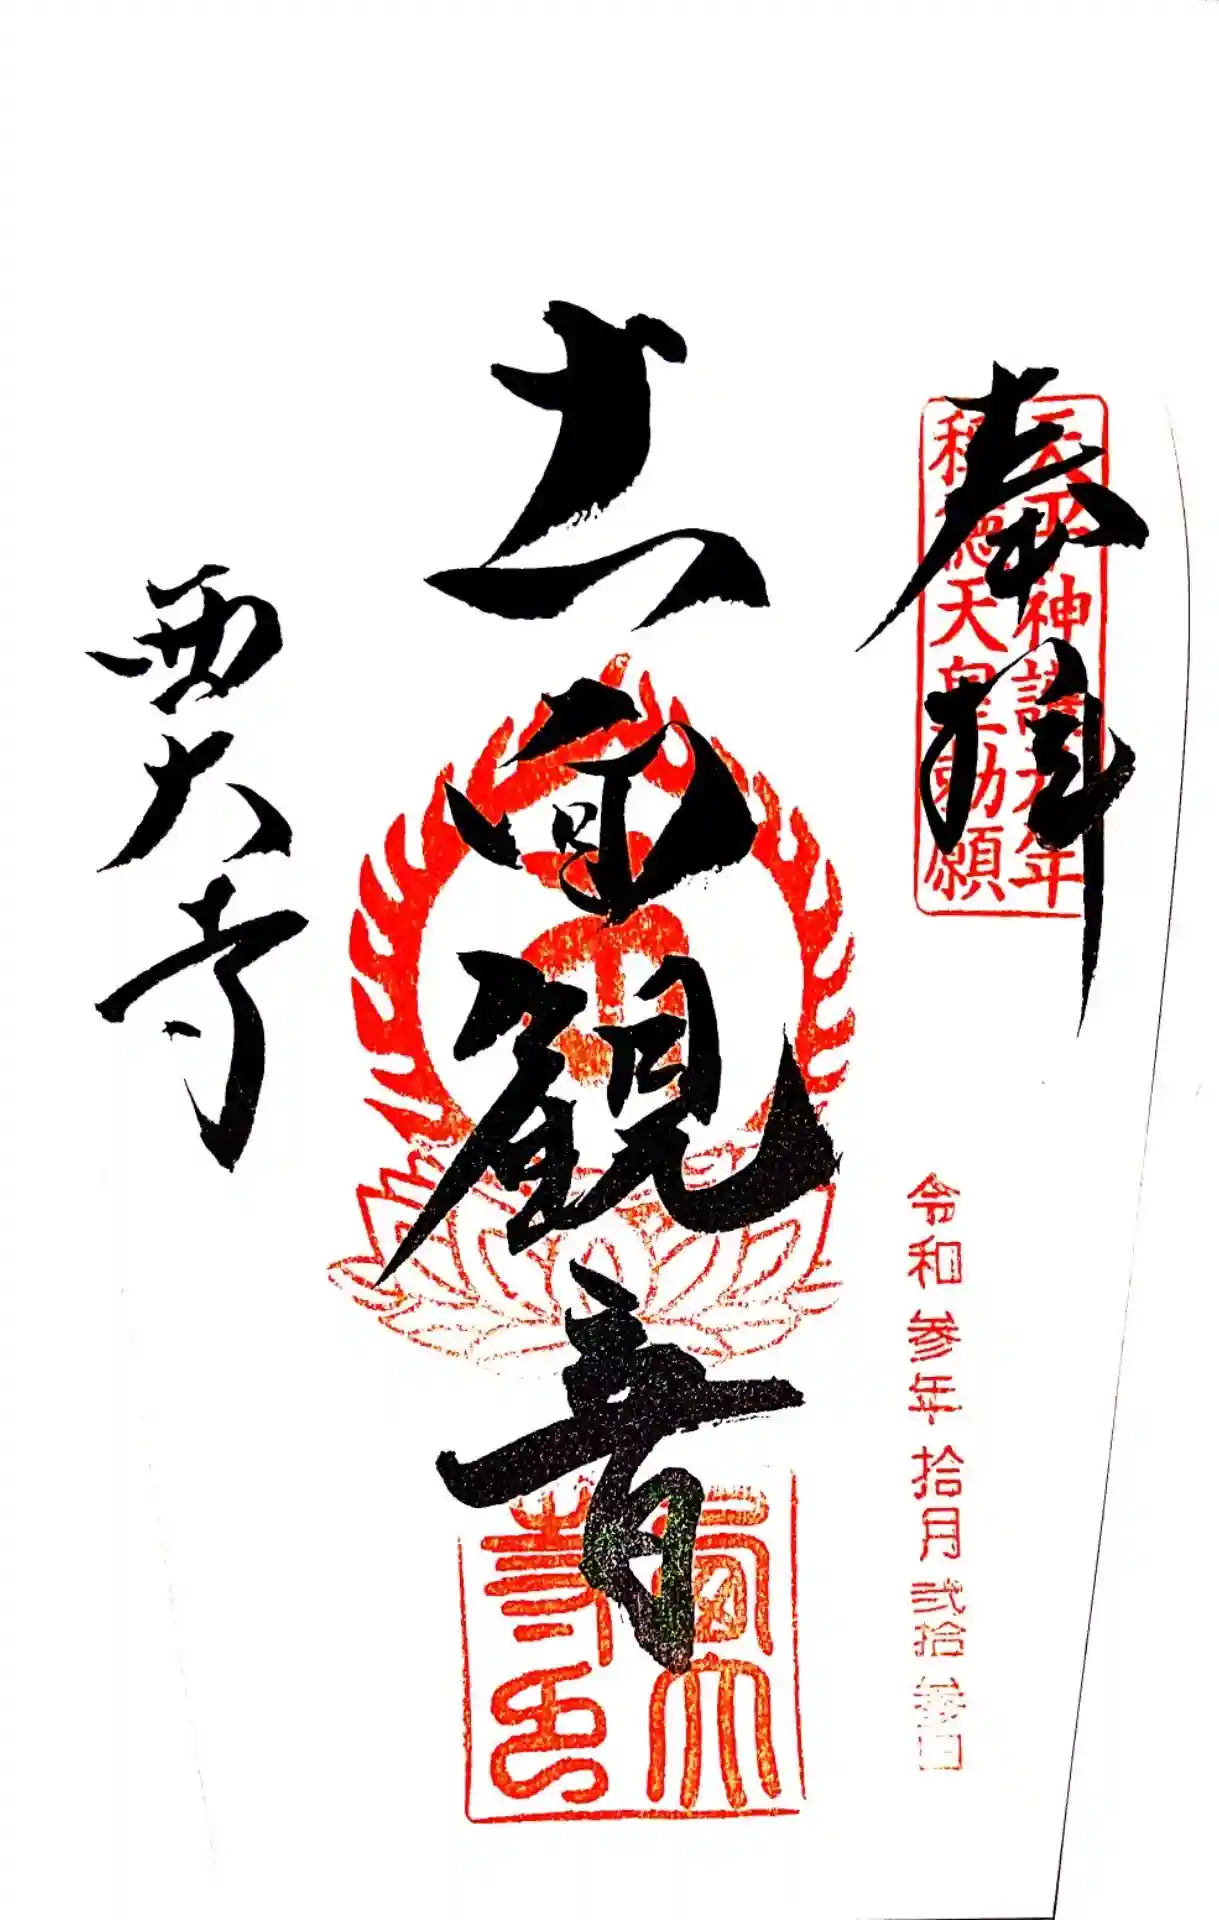 奉拝
天平神護元年
称徳天皇勅願
令和参年拾月弐拾参日
十一面観音
西大寺
西大寺印